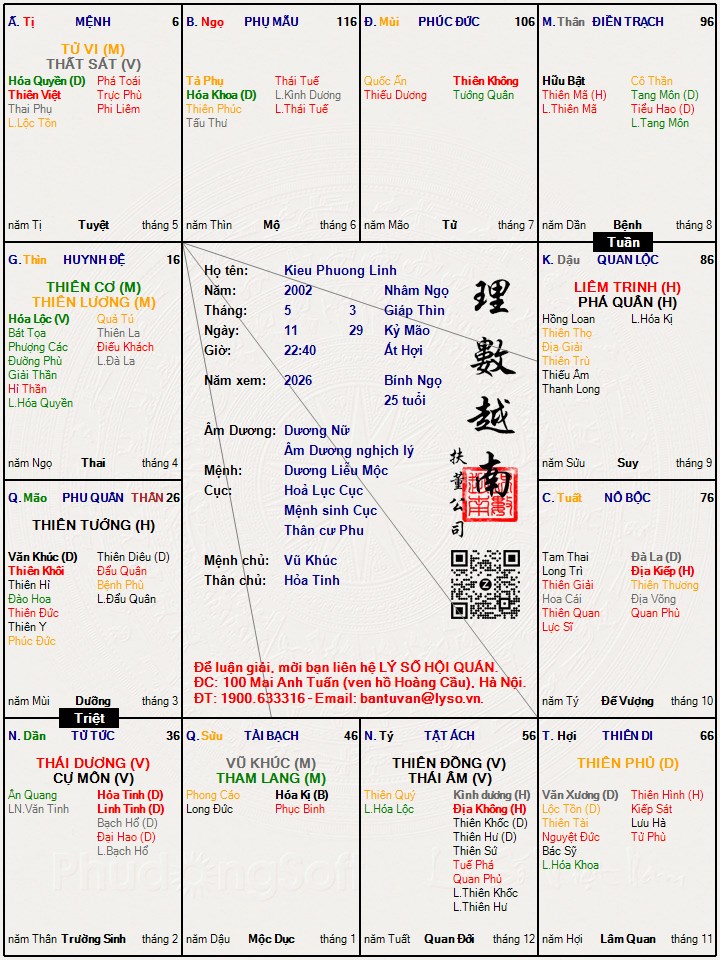 Ấ. Tị MỆNH 6
TỬ VI (M)
THẤT SÁT (V)
Hóa Quyền (D) Phá Toái
Thiên Việt Trực Phù
Thai Phụ Phi Liêm
L.Lộc Tồn
năm Tị Tuyệt tháng 5
B. Ngọ PHỤ MẪU 116
Tả Phụ Thái Tuế
Hóa Khoa (D) L.Kình Dương
Thiên Phúc L.Thái Tuế
Tấu Thư
năm Thìn Mộ tháng 6
Đ. Mùi PHÚC ĐỨC 106
Quốc Ấn Thiên Không
Thiếu Dương Tướng Quân
năm Mão Tử tháng 7
M. Thân ĐIỀN TRẠCH 96
Hữu Bật Cô Thần
Thiên Mã (H) Tang Môn (D)
L.Thiên Mã Tiểu Hao (D)
L.Tang Môn
năm Dần Bệnh tháng 8
Tuần
G. Thìn HUYNH ĐỆ 16
THIÊN CƠ (M)
THIÊN LƯƠNG (M)
Hóa Lộc (V) Quả Tú
Bát Tọa Thiên La
Phượng Các Điếu Khách
Đường Phù L.Đà La
Giải Thần
Hỉ Thần
L.Hóa Quyền
năm Ngọ Thai tháng 4
Họ tên: Kieu Phuong Linh
Năm: 2002 Nhâm Ngọ
Tháng: 5 3 Giáp Thìn
Ngày: 11 29 Kỷ Mão
Giờ: 22:40 Ất Hợi
Năm xem: 2026 Bính Ngọ
25 tuổi
Âm Dương: Dương Nữ
Âm Dương nghịch lý
Mệnh: Dương Liễu Mộc
Cục: Hoả Lục Cục
Mệnh sinh Cục
Thân cư Phu
Mệnh chủ: Vũ Khúc
Thân chủ: Hỏa Tinh
理數越南
扶董公司
Để luận giải, mời bạn liên hệ LÝ SỐ HỘI QUÁN.
ĐC: 100 Mai Anh Tuấn (ven hồ Hoàng Cầu), Hà Nội.
ĐT: 1900.633316 - Email: bantuvan@lyso.vn.
K. Dậu QUAN LỘC 86
LIÊM TRINH (H)
PHÁ QUÂN (H)
Hồng Loan L.Hóa Kị
Thiên Thọ
Địa Giải
Thiên Trù
Thiếu Âm
Thanh Long
năm Sửu Suy tháng 9
Q. Mão PHU QUÂN THÂN 26
THIÊN TƯỚNG (H)
Văn Khúc (D) Thiên Diêu (D)
Thiên Khôi Đẩu Quân
Thiên Hỉ Bệnh Phù
Đào Hoa L.Đẩu Quân
Thiên Đức
Thiên Y
Phúc Đức
năm Mùi Dưỡng tháng 3
Triệt
C. Tuất NÔ BỘC 76
Tam Thai Đà La (D)
Long Trì Địa Kiếp (H)
Thiên Giải Thiên Thương
Hoa Cái Địa Võng
Thiên Quan Quan Phù
Lực Sĩ
năm Tý Đế Vượng tháng 10
N. Dần TỬ TỨC 36
THÁI DƯƠNG (V)
CỰ MÔN (V)
Ân Quang Hỏa Tinh (D)
LN.Văn Tinh Linh Tinh (D)
Bạch Hổ (D)
Đại Hao (D)
L.Bạch Hổ
năm Thân Trường Sinh tháng 2
Q. Sửu TÀI BẠCH 46
VŨ KHÚC (M)
THAM LANG (M)
Phong Cáo Hóa Kị (B)
Long Đức Phục Binh
năm Dậu Mộc Dục tháng 1
N. Tý TẬT ÁCH 56
THIÊN ĐỒNG (V)
THÁI ÂM (V)
Thiên Quý Kình dương (H)
L.Hóa Lộc Địa Không (H)
Thiên Khốc (D)
Thiên Hư (D)
Thiên Sứ
Tuế Phá
Quan Phủ
L.Thiên Khốc
L.Thiên Hư
năm Tuất Quan Đới tháng 12
T. Hợi THIÊN DI 66
THIÊN PHỦ (D)
Văn Xương (D) Thiên Hình (H)
Lộc Tồn (D) Kiếp Sát
Thiên Tài Lưu Hà
Nguyệt Đức Tử Phù
Bác Sỹ
L.Hóa Khoa
năm Hợi Lâm Quan tháng 11